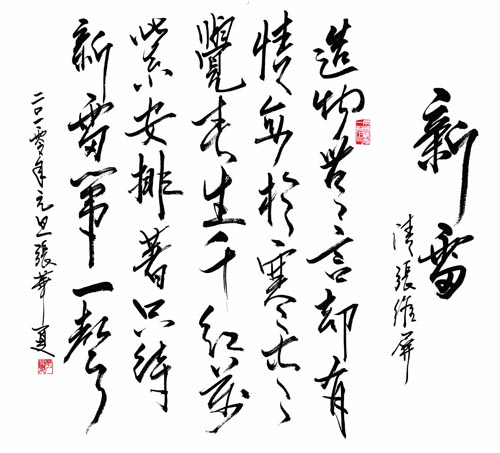 新雷
清張維屏
造物無言却有
情每於寒尽
覺春生千紅萬
紫安排著只待
新雷第一聲
二〇一零年元旦張華